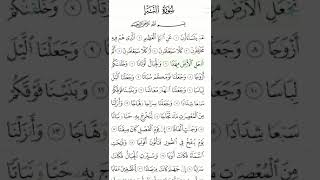 سُورَةُ النَّبَإِ
بِسْمِ اللَّهِ الرَّحْمَٰنِ الرَّحِيمِ
عَمَّ يَتَسَاءَلُونَ ١ عَنِ النَّبَإِ الْعَظِيمِ ٢ الَّذِي هُمْ فِيهِ
مُخْتَلِفُونَ ٣ كَلَّا سَيَعْلَمُونَ ٤ ثُمَّ كَلَّا سَيَعْلَمُونَ ٥
أَلَمْ نَجْعَلِ الْأَرْضَ مِهَادًا ٦ وَالْجِبَالَ أَوْتَادًا ٧ وَخَلَقْنَاكُمْ
أَزْوَاجًا ٨ وَجَعَلْنَا نَوْمَكُمْ سُبَاتًا ٩ وَجَعَلْنَا اللَّيْلَ
لِبَاسًا ١٠ وَجَعَلْنَا النَّهَارَ مَعَاشًا ١١ وَبَنَيْنَا فَوْقَكُمْ
سَبْعًا شِدَادًا ١٢ وَجَعَلْنَا سِرَاجًا وَهَّاجًا ١٣ وَأَنْزَلْنَا
مِنَ الْمُعْصِرَاتِ مَاءً ثَجَّاجًا ١٤ لِنُخْرِجَ بِهِ حَبًّا وَنَبَاتًا ١٥
وَجَنَّاتٍ أَلْفَافًا ١٦ إِنَّ يَوْمَ الْفَصْلِ كَانَ مِيقَاتًا ١٧
يَوْمَ يُنْفَخُ فِي الصُّورِ فَتَأْتُونَ أَفْوَاجًا ١٨ وَفُتِحَتِ
السَّمَاءُ فَكَانَتْ أَبْوَابًا ١٩ وَسُيِّرَتِ الْجِبَالُ فَكَانَتْ